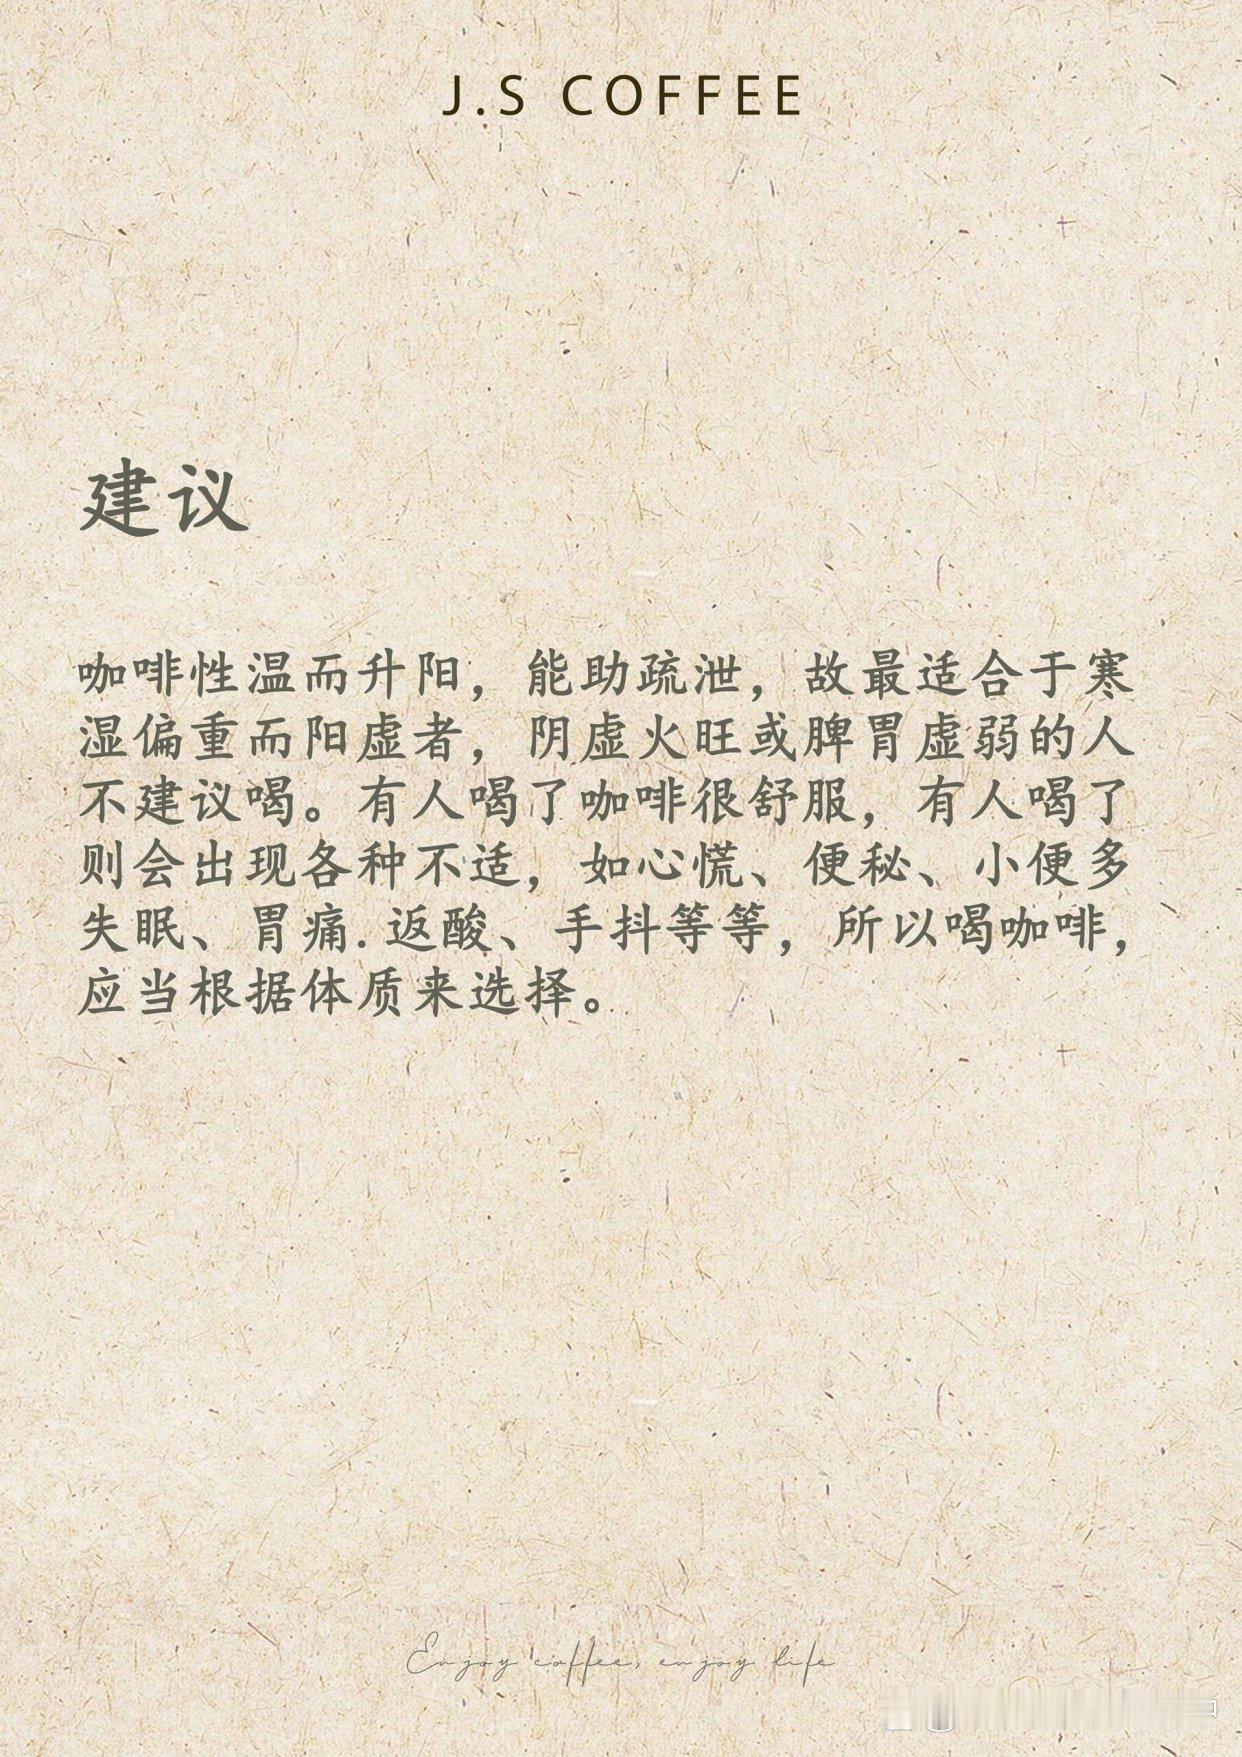 J.S COFFEE
建议
咖啡性温而升阳，能助疏泄，故最适合于寒
湿偏重而阳虚者，阴虚火旺或脾胃虚弱的人
不建议喝。有人喝了咖啡很舒服，有人喝了
则会出现各种不适，如心慌、便秘、小便多
失眠、胃痛.返酸、手抖等等，所以喝咖啡，
应当根据体质来选择。
Enjoy coffee, enjoy life